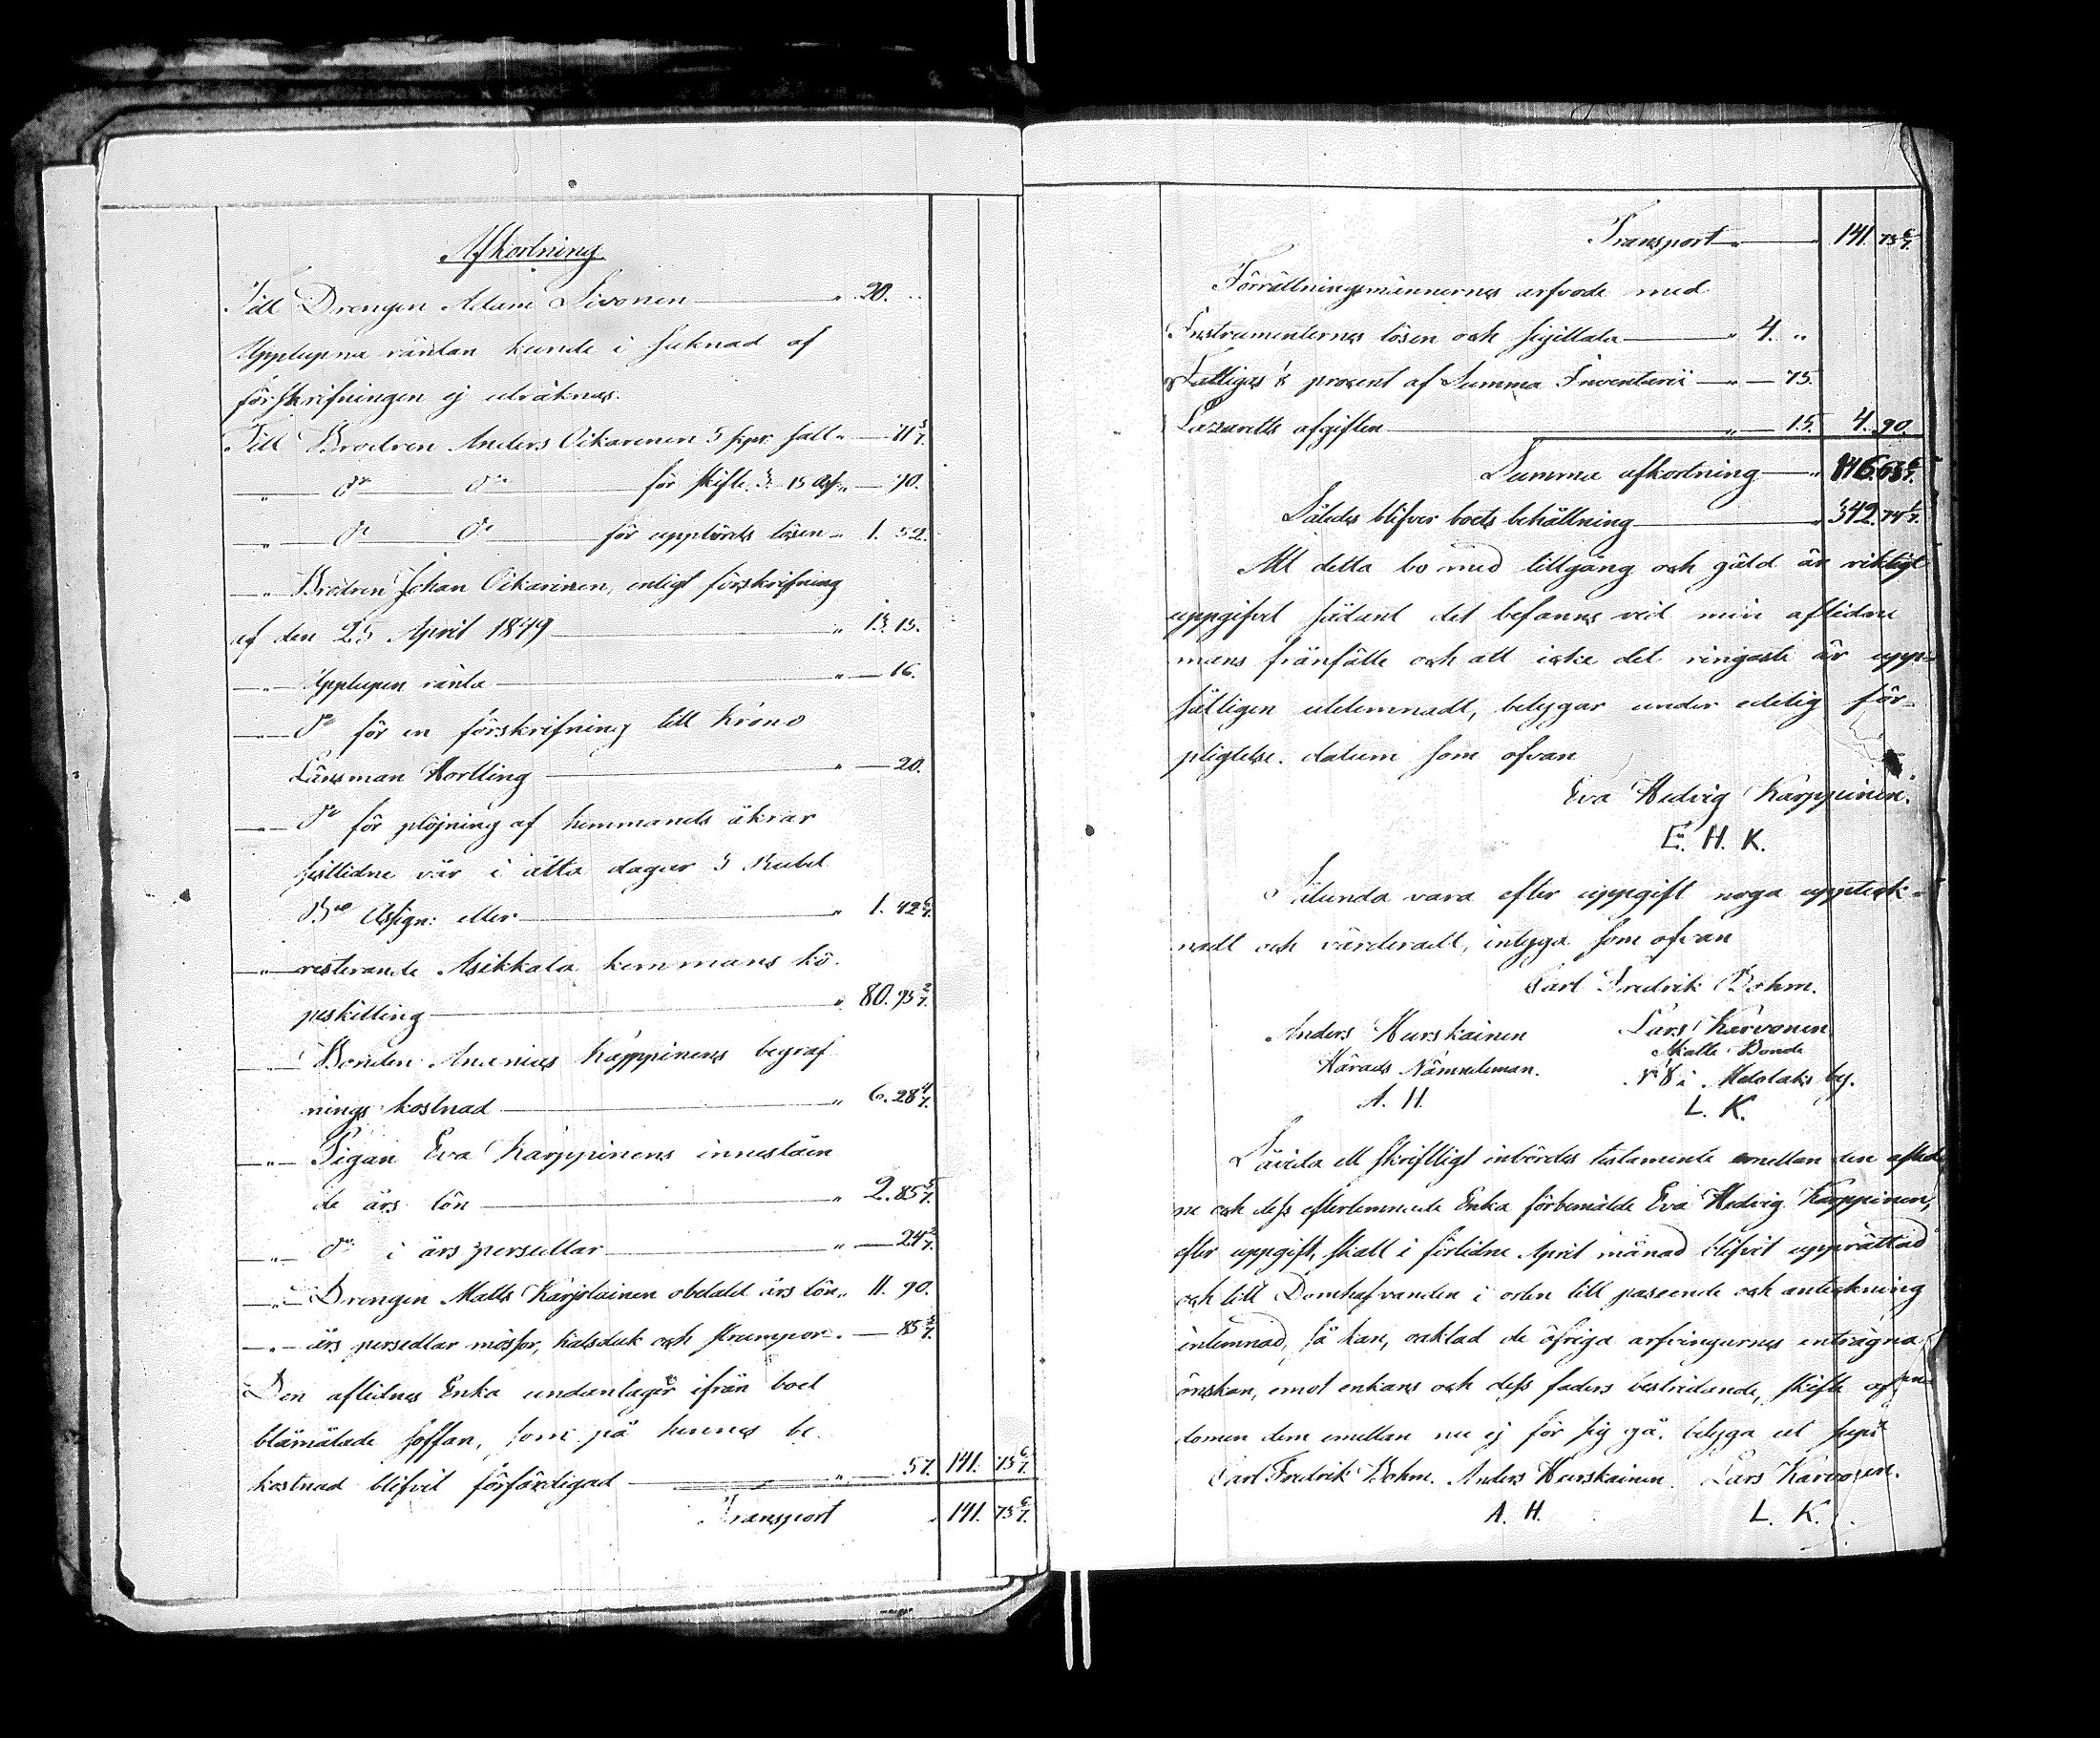 Afkortning
Till Drengen Adam Sivonen " 20. "
Upplupna räntan kunde i saknad af
förskrifningen ej uträknas.
Till Brodren Anders Oikarinen 5 kpr. salt " — 71 3/7.
" do do för skifte 15 " — 70.
" do do för uppbörds lösen " 1. 52.
" Brodren Johan Oikarinen, enligt förskrifning
af den 25 April 1849 " 13. 15.
" Upplupen ränta " — 16.
" do för en förskrifning till Krono
Länsman Hortling " — 20.
" do för plöjning af hemmanets åkrar
sistlidne vår i åtta dagar 5 Rubel
Bco Assign: eller " 1. 42 6/7.
" resterande Asikkala hemmans kö-
peskilling " 80. 95 2/7.
" Bonden Ananias Käppinens begraf
nings kostnad " 6. 28 4/7.
" Pigan Eva Karppinens innestäen
de års lön " 2. 85 5/7.
" do i års persedlar " — 24 2/7.
" Drengen Matts Karjolainen obetald års lön " 11. 90.
" års persedlar mössor, halsduk och strumpor " — 85 5/7.
Den aflidnes Enka undantager ifrån boet
blåmålade soffan, som på hennes be-
kostnad blifvit förfärdigad " — 57. 141. 73 6/7.
Transport " 141. 73 6/7.
Transport " 141. 73 6/7.
Förrättningsmännernes arfvode med
Instrumenternes lösen och sigillata " 4. "
Fattiges 1/8 procent af Summa Inventarii " — 75.
Lazaretts afgiften " — 15. 4. 90.
Summa afkortning " 146. 63 6/7.
Således blifver boets behållning " 342. 74 1/7.
Att detta bo med tillgång och gäld är riktigt
uppgifvet sådant det befanns vid min aflidne
mans frånfälle och att icke det ringaste är upp-
såtligen utelemnadt, betygar under edelig för-
pligtelse. datum som ofvan
Eva Hedvig Karppinen.
E. H. K.
Sålunda vara efter uppgift noga uppteck-
nadt och värderadt, intyga som ofvan
Carl Fredrik Bohm.
Anders Hurskainen Lars Karvonen
Härads Nämndeman. Skatte Bonde
No 8 i Melalaks by.
A. H. L. K.
Såvida ett skriftligt inbördes testamente emellan den aflid
ne och dess efterlemnade Enka förbemälde Eva Hedvig Karppinen,
efter uppgift, skall i förlidne April månad blifvit upprättad
och till Domhafvanden i orten till paseende och anteckning
inlemnad, så kan, oaktad de öfriga arfvingarnes enträgna
önskan, emot enkans och dess faders bestridande, skifte af en
domen dem emellan nu ej för sig gå. betyga ut supra
Carl Fredrik Bohm. Anders Hurskainen. Lars Karvonen.
A. H. L. K.